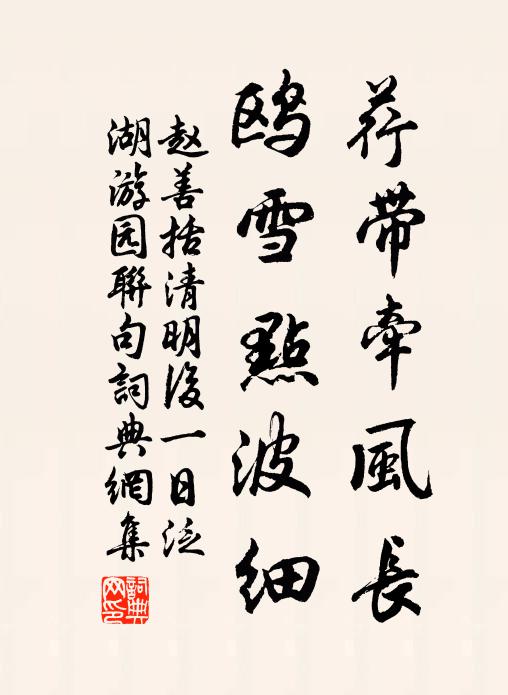 荇带牽風長
鸥雪點波細
赵善括清明後一日泛
湖游园聯句詞典網集
詞典網印